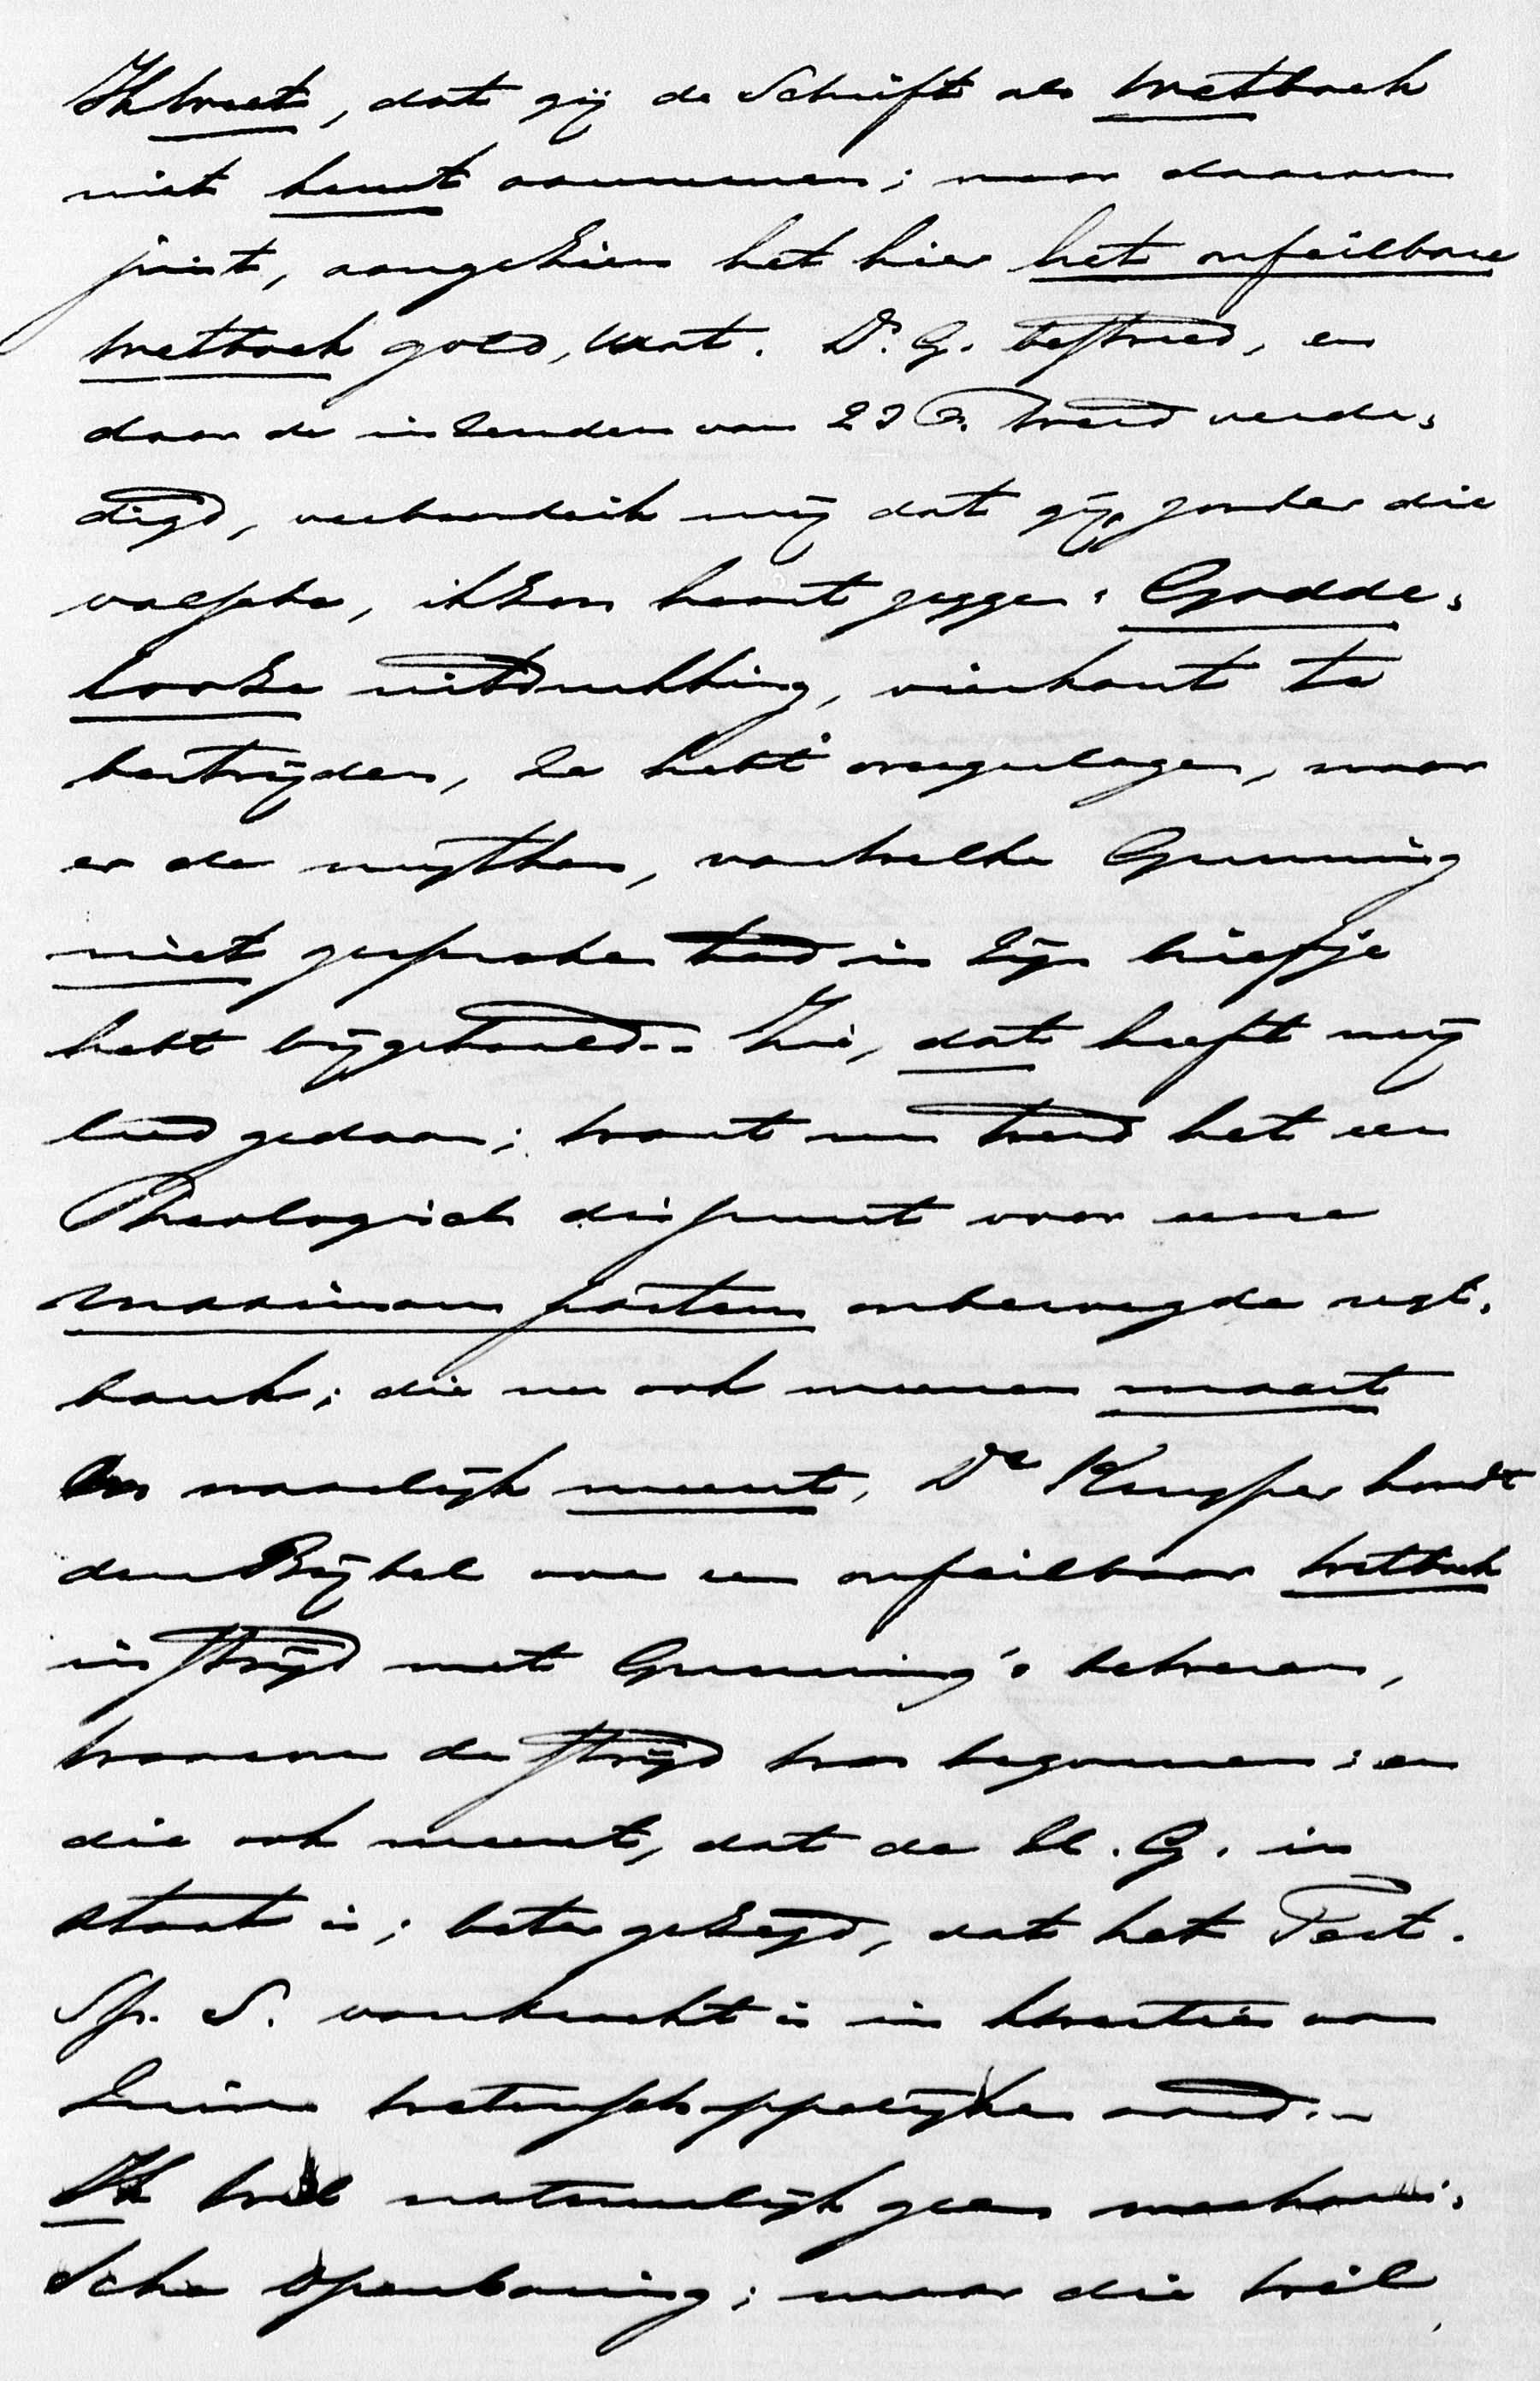 Ik weet, dat gij de Schrift als wetboek
niet kunt aannemen; maar daarom
juist, aangezien het hier het onfeilbare
wetboek gold, wat. Dr. G. bestreed, en
door de inzender van werd verde-
digd, verwonderde ik mij dat gij, zonder die
valsche, ik zou haast zeggen: Godde-
looze uitdrukking, vierkant te
bestrijden, ze hebt overgeslagen, maar
er de mythen, van welke Gunning
niet gesproken had in zijn briefje
hebt bijgehaald.. Zie, dat heeft mij
leed gedaan; want nu werd het een
Theologisch dispuut voor eene
maximam partem onbevoegde regt-
bank; die nu ook meenen moest
en waarlijk meent, Dr Kuyper houdt
den Bijbel voor een onfeilbaar wetboek
in strijd met Gunning's beweren,
waarom de strijd was begonnen; en
die ook meent, dat de H. G. in
staat is; beter gezegd, dat het Test.
Sp. S. van kracht is in kwestiën van
zuiver wetenschappelijken aard..
Ik wil natuurlijk geen mechani-
sche Openbaring; maar die wil